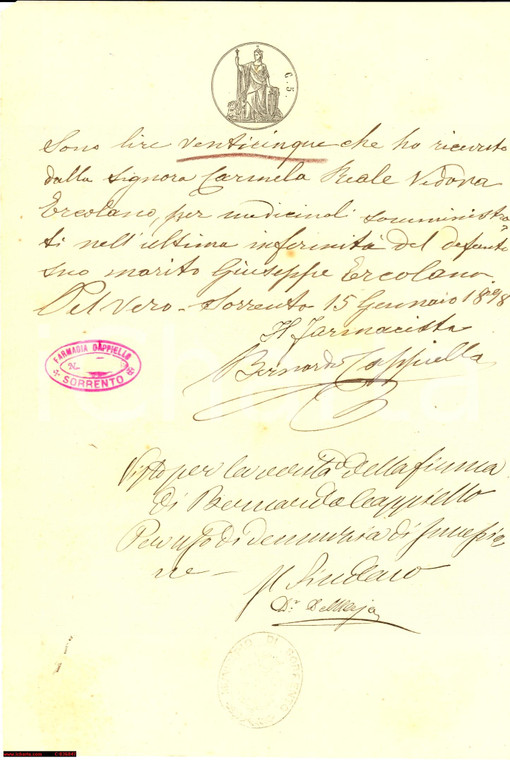 C. 5.
Sono lire venticinque che ho ricevuto
dalla Signora Carmela Reale Vedova
Ercolano, per medicinali somministra
ti nell'ultima infermità del defunto
suo marito Giuseppe Ercolano.
Pel vero - Sorrento 15 Gennaio 1898
Il farmacista
Bernardo Cappiello
FARMACIA CAPPIELLO
SORRENTO
Visto per la verità della firma
di Bernardo Cappiello
Per uso di denunzia di succession
ne -
Il Sindaco
Dr.
MUNICIPIO DI SORRENTO